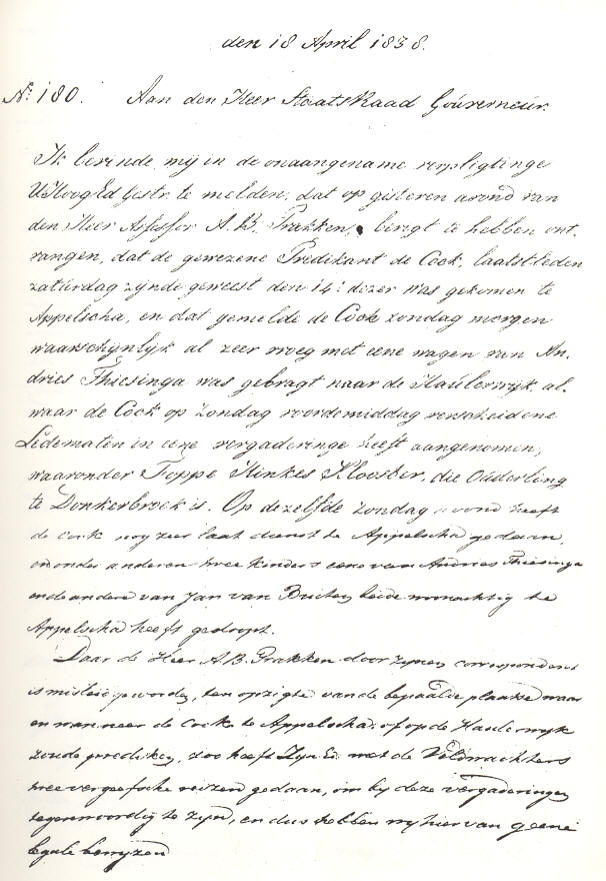 den 18 April 1838.
No. 180. Aan den Heer Staatsraad Gouverneur
Ik bevinde mij in de onaangename verpligtinge
UHoogEdGestr. te melden, dat op gisteren avond van
den Heer Assessor A. B. Prakken, berigt te hebben ont-
vangen, dat de gewezene Predikant de Cock, laatstleden
zaturdag zynde geweest den 14e dezer was gekomen te
Appelscha, en dat gemelde de Cock zondag morgen
waarschynlyk al zeer vroeg met eene wagen van An-
dries Thiesinga was gebragt naar de Haulerwyk, al-
waar de Cock op zondag voordemiddag verscheidene
Ledematen in eene vergaderinge heeft aangenomen,
waaronder Foppe Hinkes Klooster, die Ouderling
te Donkerbroek is. Op dezelfde zondag avond heeft
de Cock nog zeer laat dienst te Appelscha gedaan,
en onder anderen twee kinders eene van Andries Thiesinga
en de andere van Jan van Buiten beide woonachtig te
Appelscha heeft gedoopt.
Daar de Heer A. B. Prakken door zynen correspondent
is misleid geworden, ten opzigte van de bepaalde plaatse waar
en wanneer de Cock te Appelscha, of op de Haulerwyk
zoude prediken, zoo heeft Zyn Ed. met de Veldwachters
twee vergeefsche reizen gedaan, om by deze vergaderingen
tegenwoordig te zyn, en dus hebben wy hier van geene
legale bewyzen